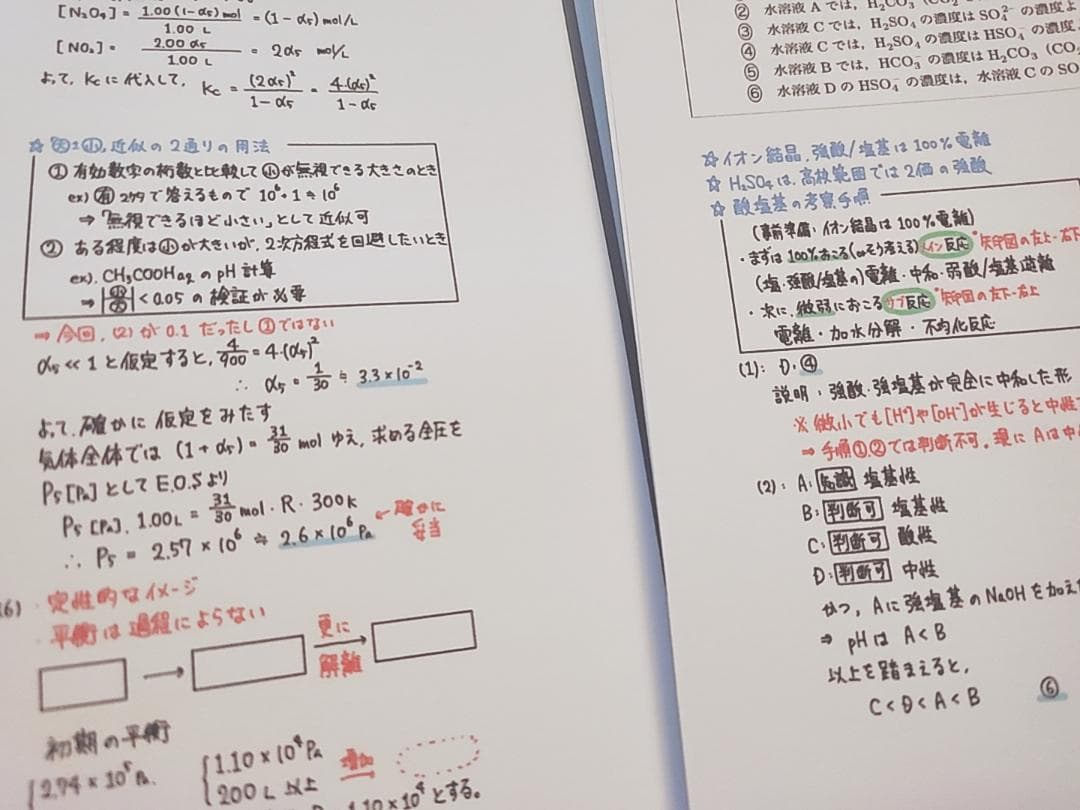 [N₂O₄] = 1.00(1-α₅)mol / 1.00 L = (1-α₅)mol/L
[NO₂] = 2.00α₅ / 1.00 L = 2α₅ mol/L
よって、Kcに代入して、 Kc = (2α₅)² / 1-α₅ = 4・(α₅)² / 1-α₅
☆大±小、近似の2通りの用法
① 有効数字の桁数と比較して小が無視できる大きさのとき
ex) 有2ケタで答えるもので 10⁶+1≒10⁶
⇒「無視できるほど小さい」として近似可
② ある程度は小が大きいが、2次方程式を回避したいとき
ex). CH₃COOHaqのpH計算
⇒ |小/大| < 0.05 の検証が必要
⇒ 今回、(2)が0.1だったし①ではない
α₅ ≪ 1 と仮定すると、4/900 = 4・(α₅)²
∴ α₅ = 1/30 ≒ 3.3×10⁻²
よって、確かに仮定をみたす
気体全体では (1+α₅) = 31/30 mol ゆえ、求める全圧を
P₅[Pa]として E.O.Sより
P₅[Pa]・1.00L = 31/30 mol・R・300K
∴ P₅ = 2.57×10⁶ ≒ 2.6×10⁶ Pa ← 確かに妥当
(6)・定性的なイメージ
・平衡は過程によらない
→ 更に解離
初期の平衡
2.74×10⁵ Pa
1.10×10⁴ Pa
200L 以上
増加
1.10×10⁴とする。
② 水溶液 A では，H₂CO₃
③ 水溶液 C では，H₂SO₄ の濃度は SO₄²⁻ の濃度よ
④ 水溶液 C では，H₂SO₄ の濃度は HSO₄⁻ の濃度
⑤ 水溶液 B では，HCO₃⁻ の濃度は H₂CO₃ (CO
⑥ 水溶液 D の HSO₄⁻ の濃度は，水溶液 C の SO
☆イオン結晶、強酸/塩基は100%電離
☆H₂SO₄は、高校範囲では2価の強酸
☆酸塩基の考察手順
(事前準備:イオン結晶は100%電離)
・まずは100%おこる(orそう考える)メイン反応 *矢印図の左上→右下
(塩・強酸/塩基の)電離・中和・弱酸/塩基遊離
・次に、微弱におこるサブ反応 *矢印図の左下→右上
電離・加水分解・不均化反応
(1): D・④
説明:強酸・強塩基が完全に中和した形
※微小でも[H⁺]や[OH⁻]が生じると中性
⇒ 手順①,②では判断不可。現にAは中
(2): A:知識 塩基性
B:判断可 塩基性
C:判断可 酸性
D:判断可 中性
かつ、Aに強塩基のNaOHを加え
⇒ pHは A<B
以上を踏まえると、
C<D<A<B ⑥